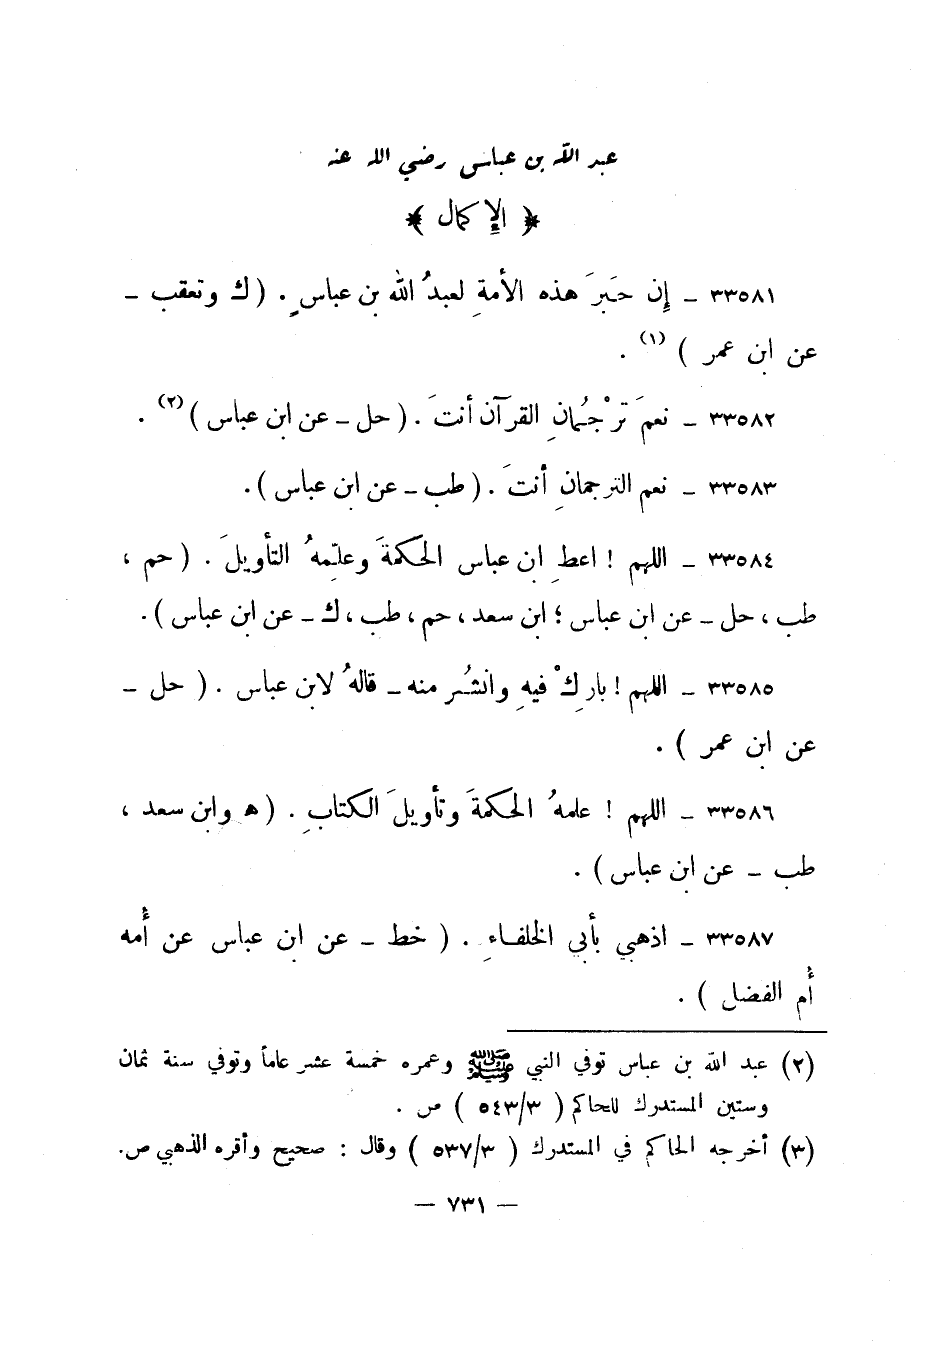 عبد الله بن عباس رضي الله عنه
﴿ الإكمال ﴾
٣٣٥٨١ – إن حَبرَ هذه الأمةِ لعبدُ الله بن عباسٍ . ( ك وتعقب –
عن ابن عمر ) (١) .
٣٣٥٨٢ – نعمَ ترْجُمانِ القرآن أنتَ . ( حل – عن ابن عباس ) (٢) .
٣٣٥٨٣ – نعم الترجمانِ أنتَ . ( طب – عن ابن عباس ) .
٣٣٥٨٤ – اللهم ! اعطِ ابن عباس الحكمةَ وعلّمهُ التأويلَ . ( حم ،
طب ، حل – عن ابن عباس ؛ ابن سعد ، حم ، طب ، ك – عن ابن عباس ) .
٣٣٥٨٥ – اللهم ! باركْ فيهِ وانشُر منه – قالهُ لابن عباس . ( حل –
عن ابن عمر ) .
٣٣٥٨٦ – اللهم ! علمهُ الحكمةَ وتأويلَ الكتابِ . ( ه وابن سعد ،
طب – عن ابن عباس ) .
٣٣٥٨٧ – اذهبي بأبي الخلفاءِ . ( خط – عن ابن عباس عن أُمه
أُم الفضل ) .
(٢) عبد الله بن عباس توفي النبي ﷺ وعمره خمسة عشر عاماً وتوفي سنة ثمان
وستين المستدرك للحاكم ( ٥٤٣/٣ ) ص .
(٣) أخرجه الحاكم في المستدرك ( ٥٣٧/٣ ) وقال : صحيح وأقره الذهبي ص.
– ٧٣١ –